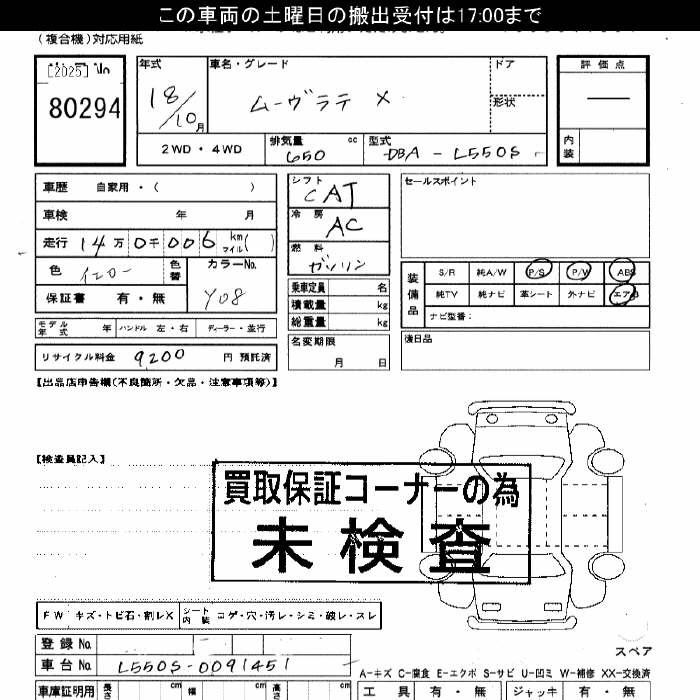 この車両の土曜日の搬出受付は17:00まで
(複合機)対応用紙
[2025] No
80294
年式
18/10月
車名・グレード
ムーヴラテ X
ドア
形状
評価点
内装
2WD・4WD
排気量 650 cc
型式 DBA - L550S
車歴 自家用・( )
車検 年 月
走行 14万0千006 km マイル( )
色 イエロー 色替
カラーNo. Y08
保証書 有・無
モデル年式 年 ハンドル 左・右 ディーラー・並行
リサイクル料金 9200 円 預託済
シフト CAT
冷房 AC
燃料 ガソリン
乗車定員 名
積載量 kg
総重量 kg
名変期限
月 日
セールスポイント
装備品
S/R 純A/W P/S P/W ABS
純TV 純ナビ 革シート 外ナビ エアB
ナビ型番:
後日品
【出品店申告欄(不良箇所・欠品・注意事項等)】
【検査員記入】
買取保証コーナーの為
未検査
FW キズ・トビ石・割レX シート内装 コゲ・穴・汚レ・シミ・破レ・スレ
登録No.
車台No. L550S-0091451
スペア
A-キズ C-腐食 E-エクボ S-サビ U-凹ミ W-補修 XX-交換済
車庫証明用 長さ cm 幅 cm 高さ cm
工具 有・無 ジャッキ 有・無